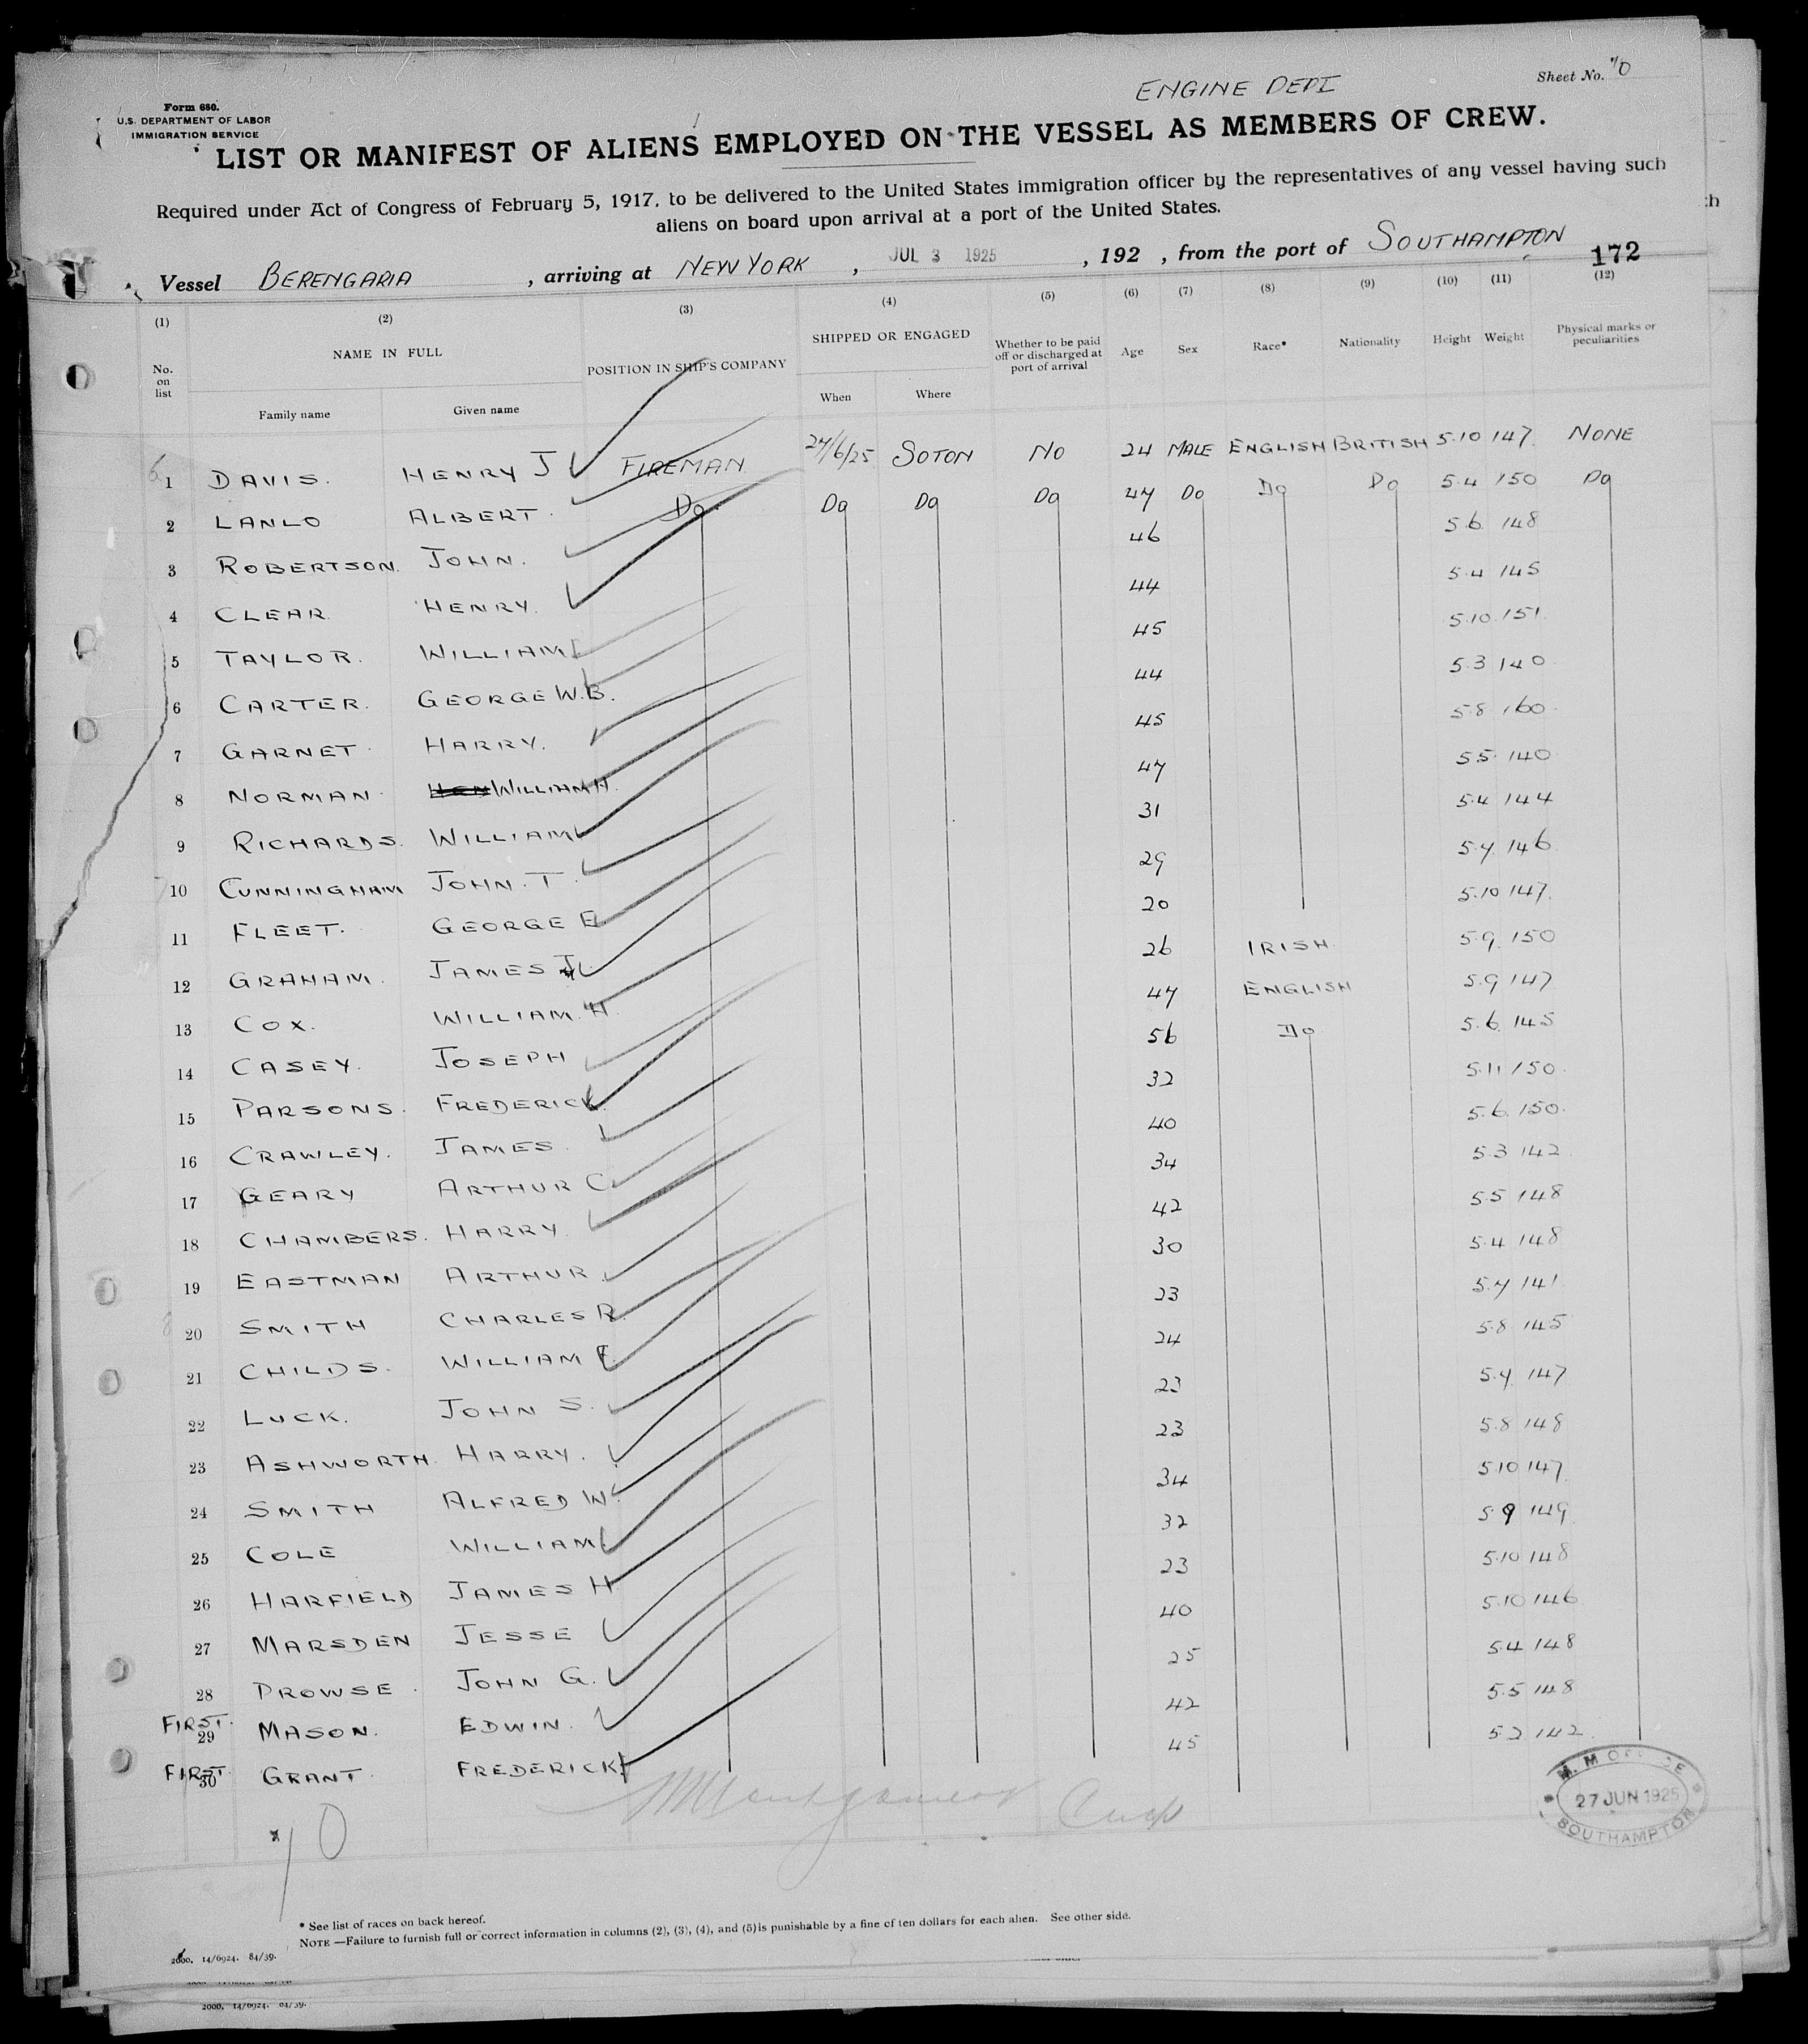 ENGINE DEPT
Sheet No. 10
Form 680.
U.S. DEPARTMENT OF LABOR
IMMIGRATION SERVICE
LIST OR MANIFEST OF ALIENS EMPLOYED ON THE VESSEL AS MEMBERS OF CREW.
Required under Act of Congress of February 5, 1917, to be delivered to the United States immigration officer by the representatives of any vessel having such
aliens on board upon arrival at a port of the United States.
Vessel BERENGARIA , arriving at NEW YORK , JUL 3 1925 , 192 , from the port of SOUTHAMPTON 172
(1) (2) (3) (4) (5) (6) (7) (8) (9) (10) (11) (12)
No. on list NAME IN FULL POSITION IN SHIP'S COMPANY SHIPPED OR ENGAGED Whether to be paid off or discharged at port of arrival Age Sex Race* Nationality Height Weight Physical marks or peculiarities
Family name Given name When Where
1 DAVIS. HENRY J FIREMAN 24/6/25 SOTON NO 24 MALE ENGLISH BRITISH 5.10 147 NONE
2 LANLO ALBERT. Do Do Do Do 47 Do Do Do 5.4 150 Do
3 ROBERTSON. JOHN. 46 5.6 148
4 CLEAR HENRY. 44 5.4 145
5 TAYLOR. WILLIAM 45 5.10 151
6 CARTER. GEORGE W.B. 44 5.3 140
7 GARNET HARRY. 45 5.8 160
8 NORMAN WILLIAM H. 47 5.5 140
9 RICHARDS. WILLIAM 31 5.4 144
10 CUNNINGHAM JOHN. T. 29 5.7 146
11 FLEET. GEORGE E 20 5.10 147
12 GRAHAM. JAMES J 26 IRISH 5.9 150
13 COX. WILLIAM. H. 47 ENGLISH 5.9 147
14 CASEY. JOSEPH 56 Do 5.6 145
15 PARSONS. FREDERICK. 32 5.11 150
16 CRAWLEY. JAMES 40 5.6 150
17 GEARY ARTHUR C 34 5.3 142
18 CHAMBERS. HARRY 42 5.5 148
19 EASTMAN ARTHUR 30 5.4 148
20 SMITH CHARLES R. 23 5.7 141
21 CHILDS. WILLIAM F. 24 5.8 145
22 LUCK. JOHN S. 23 5.7 147
23 ASHWORTH. HARRY. 23 5.8 148
24 SMITH ALFRED W. 34 5.10 147
25 COLE WILLIAM 32 5.9 149
26 HARFIELD JAMES H 23 5.10 148
27 MARSDEN JESSE 40 5.10 146
28 PROWSE. JOHN G. 25 5.4 148
FIRST. 29 MASON. EDWIN. 42 5.5 148
FIRST. 30 GRANT FREDERICK 45 5.2 142
10
M. M OFFICE
27 JUN 1925
SOUTHAMPTON
* See list of races on back hereof.
NOTE —Failure to furnish full or correct information in columns (2), (3), (4), and (5) is punishable by a fine of ten dollars for each alien. See other side.
2000. 14/6924. 84/39.
2000. 14/6924. 84/39.